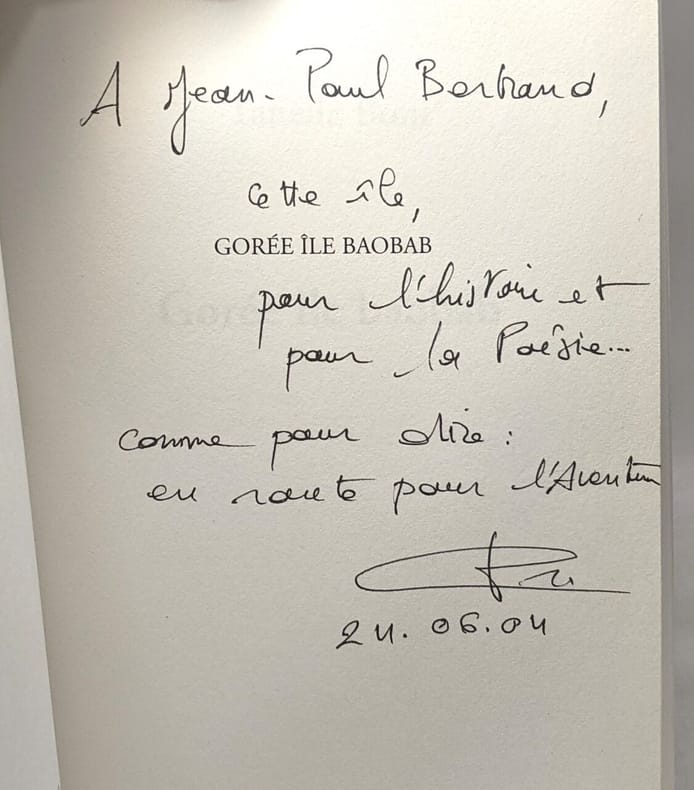 A Jean-Paul Bertrand,
cette île,
GORÉE ÎLE BAOBAB
pour l'histoire et
pour la Poésie...
comme pour dire :
en route pour l'Aventure
24.06.04